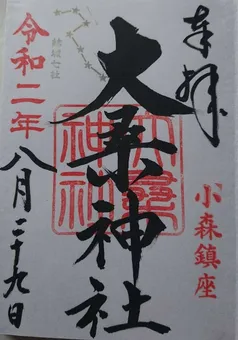 奉拝
小森鎮座
大桑神社
大桑神社
結城七社
令和二年
八月二十九日